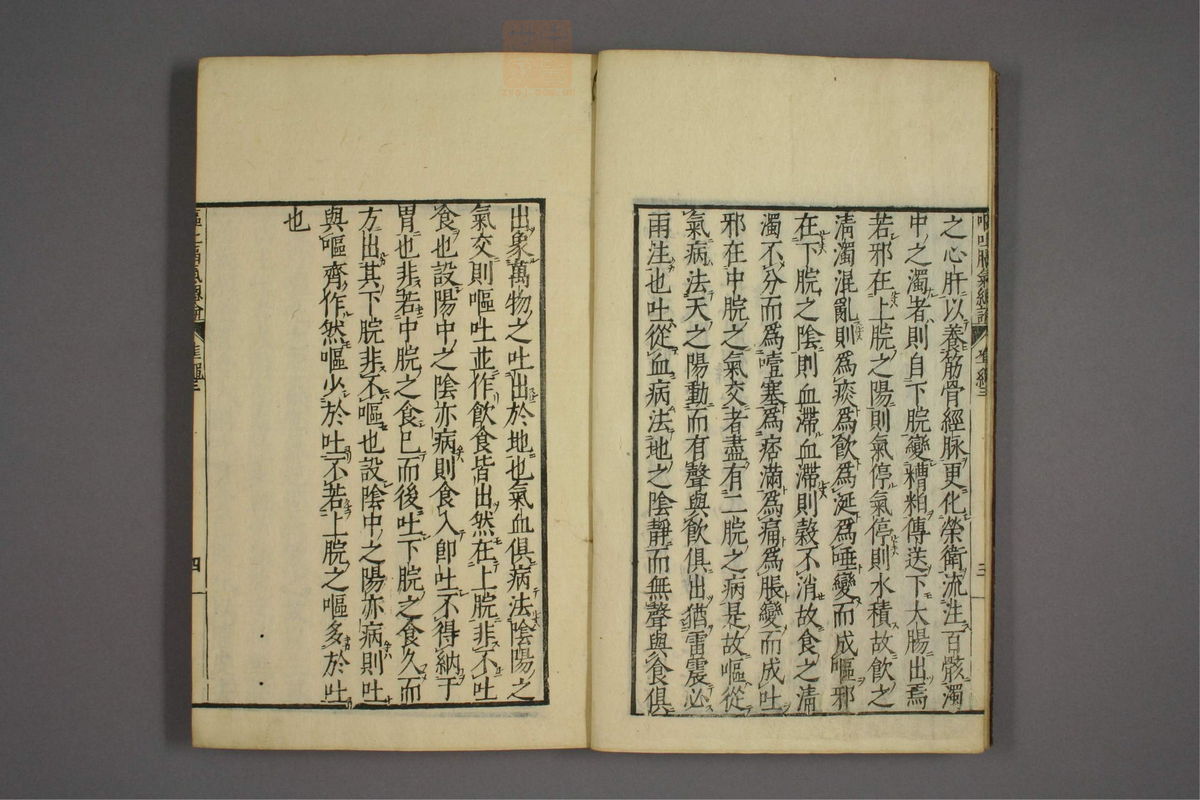 之心肝以養筋骨經脉更化榮衛流注百骸濁
中之濁者則自下脘變糟粕傳送下大腸出焉
若邪在上脘之陽則氣停氣停則水積故飲之
淸濁混亂則爲痰爲飲爲涎爲唾變而成嘔邪
在下脘之陰則血滯血滯則穀不消故食之淸
濁不分而爲噎塞爲痞滿爲痛爲脹變而成吐
邪在中脘之氣交者盡有二脘之病是故嘔從
氣病法天之陽動而有聲與飲俱出猶雷震必
雨注也吐從血病法地之陰靜而無聲與食俱
三
出象萬物之吐出於地也氣血俱病法陰陽之
氣交則嘔吐並作飲食皆出然在上脘非不吐
食也設陽中之陰亦病則食入卽吐不得納于
胃也非若中脘之食已而後吐下脘之食久而
方出其下脘非不嘔也設陰中之陽亦病則吐
與嘔齊作然嘔少於吐不若上脘之嘔多於吐
也
四